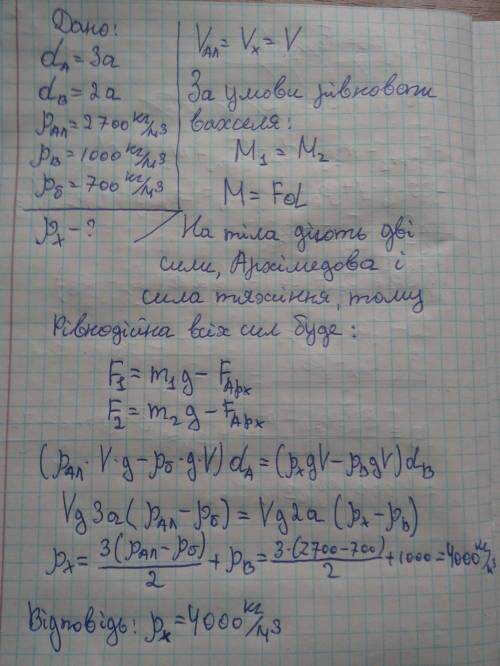 Дано:
d_A = 3a
d_B = 2a
ρ_Ал = 2700 кг/м3
ρ_В = 1000 кг/м3
ρ_б = 700 кг/м3
ρ_x - ?
V_Ал = V_x = V
За умови рівноваги
важеля:
M₁ = M₂
M = Fd
На тіла діють дві
сили, Архімедова і
сила тяжіння, тому
Рівнодійна всіх сил буде:
F₁ = m₁g – F_Арх
F₂ = m₂g – F_Арх
(ρ_Ал · V · g – ρ_б · g · V) d_A = (ρ_x gV – ρ_В gV) d_B
Vg 3a (ρ_Ал – ρ_б) = Vg 2a (ρ_x – ρ_В)
ρ_x = 3(ρ_Ал – ρ_б)/2 + ρ_В = 3·(2700–700)/2 + 1000 = 4000 кг/м3
Відповідь: ρ_x = 4000 кг/м3